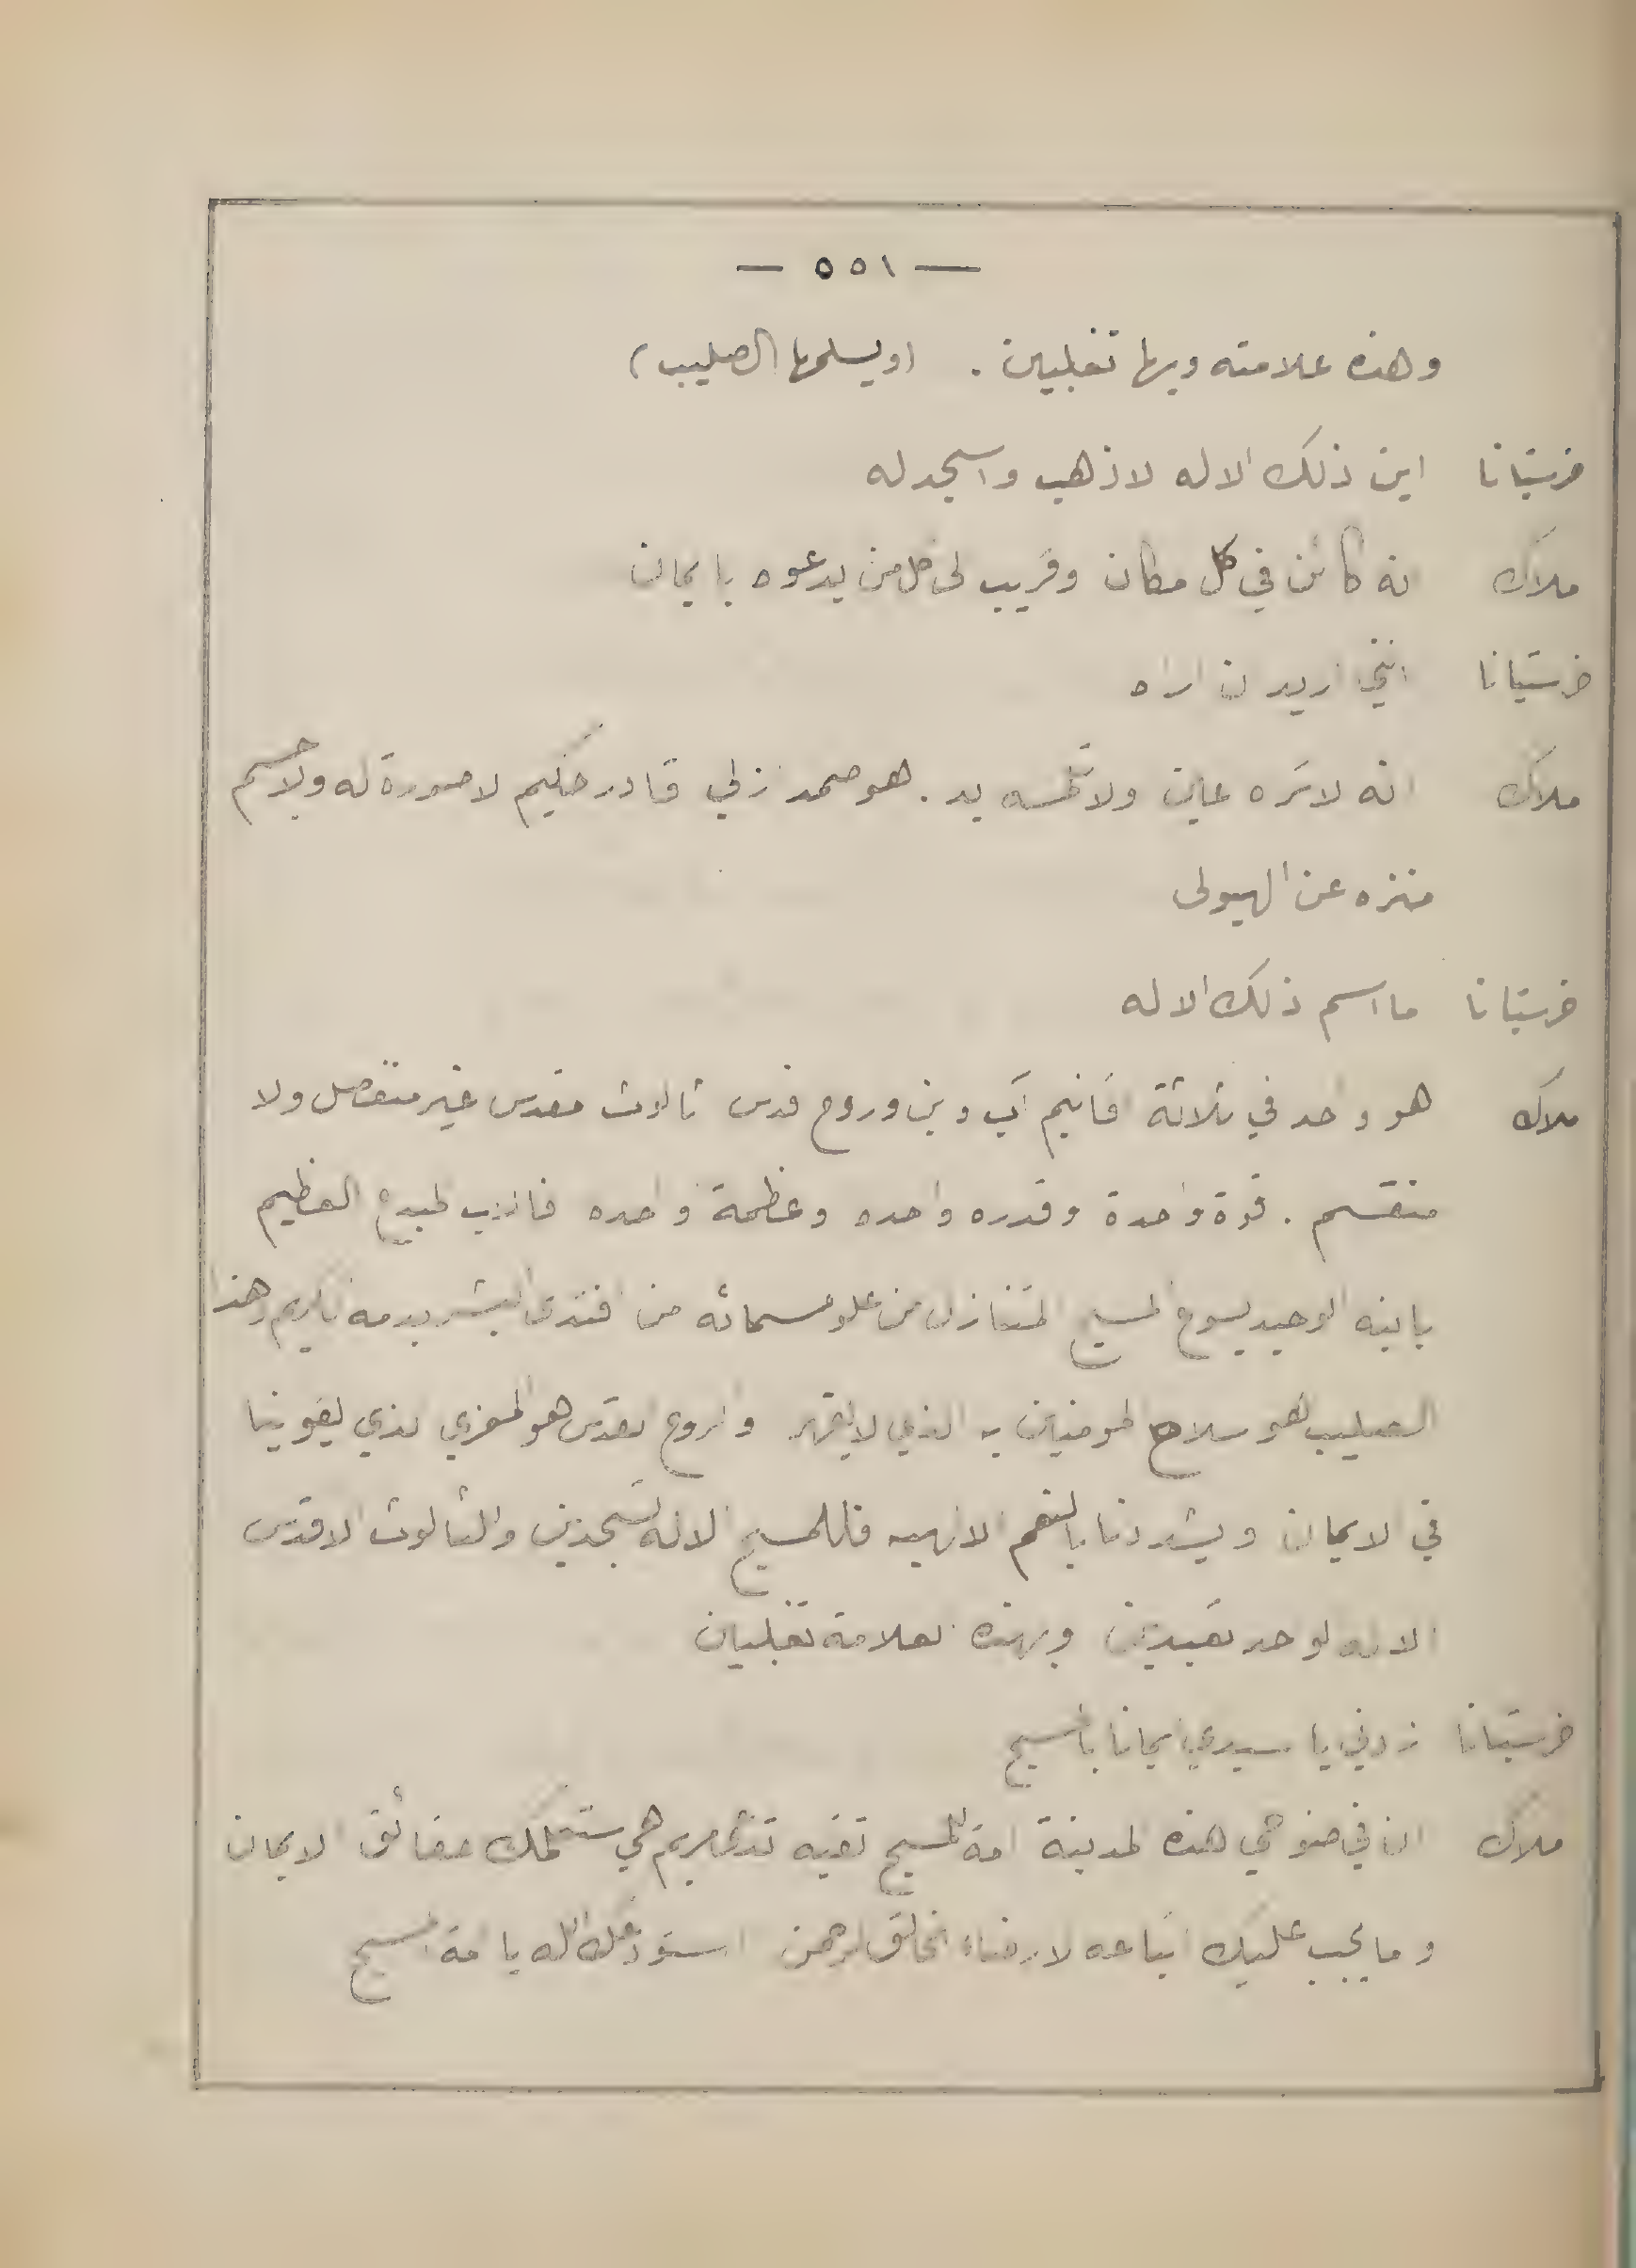 — ٥٥١ —
وهذه علامته وبها تغلبين . (ويسلمها الصليب)
خرستيانا اين ذلك الاله لاذهب واسجد له
ملاك انه كائن في كل مكان وقريب لى كل من يدعوه بايمان
خرستيانا انني اريد ان اراه
ملاك انه لا تره عين ولا تلمسه يد . هو صمد ازلي قادر حكيم لا صورة له ولا جسم
منزه عن الهيولى
خرستيانا ما اسم ذلك الاله
ملاك هو واحد في ثلاثة اقانيم آب وبن وروح قدس ثالوث مقدس غير منفصل ولا
منقسم . قوة واحدة وقدره واحده وعظمة واحده فالاب المبدع العظيم
بابنه الوحيد يسوع المسيح المتنازل من علو سمائه من افتدى البشر بدمه الكريم وهذا
الصليب هو سلاح المومنين به الذي لا يقهر والروح القدس هو المعزي الذي يقوينا
في الايمان ويشددنا بالنعم الالهيه فللمسيح الاله تسجدين والثالوث الاقدس
الاله الوحد تعبدين وبهذه العلامة تغلبين
خرستيانا زدني يا سيدي ايمانا بالمسيح
ملاك ان في ضواحي هذه المدينة امة للمسيح تقيه تدعى مريم هي ستعلمك حقائق الايمان
وما يجب عليك اتباعه لارضاء الخالق الرحمن استودعك الله يا امة المسيح